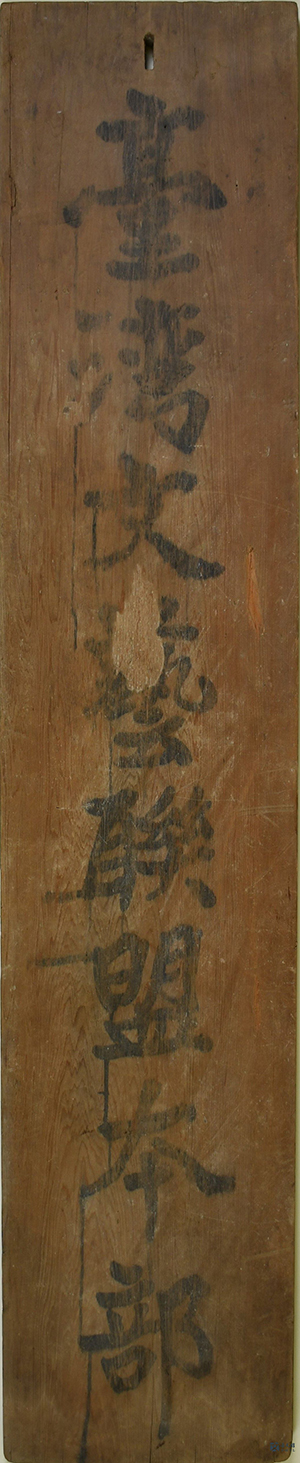 臺灣文藝聯盟本部